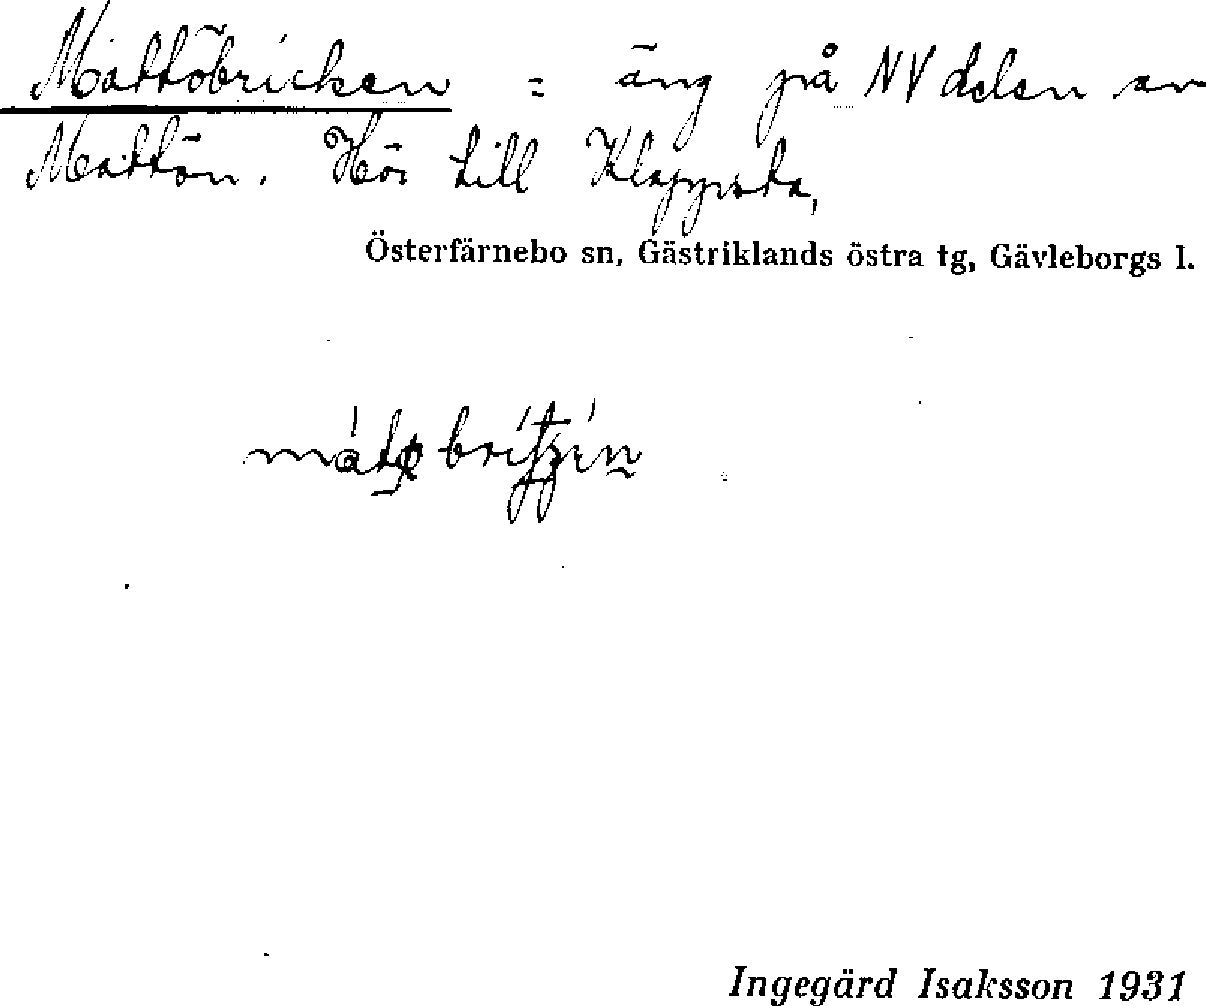 Mattöbricken = äng på NV delen av
Mattön. Hör till Klappsta,
Österfärnebo sn, Gästriklands östra tg, Gävleborgs l.
Ingegärd Isaksson 1931